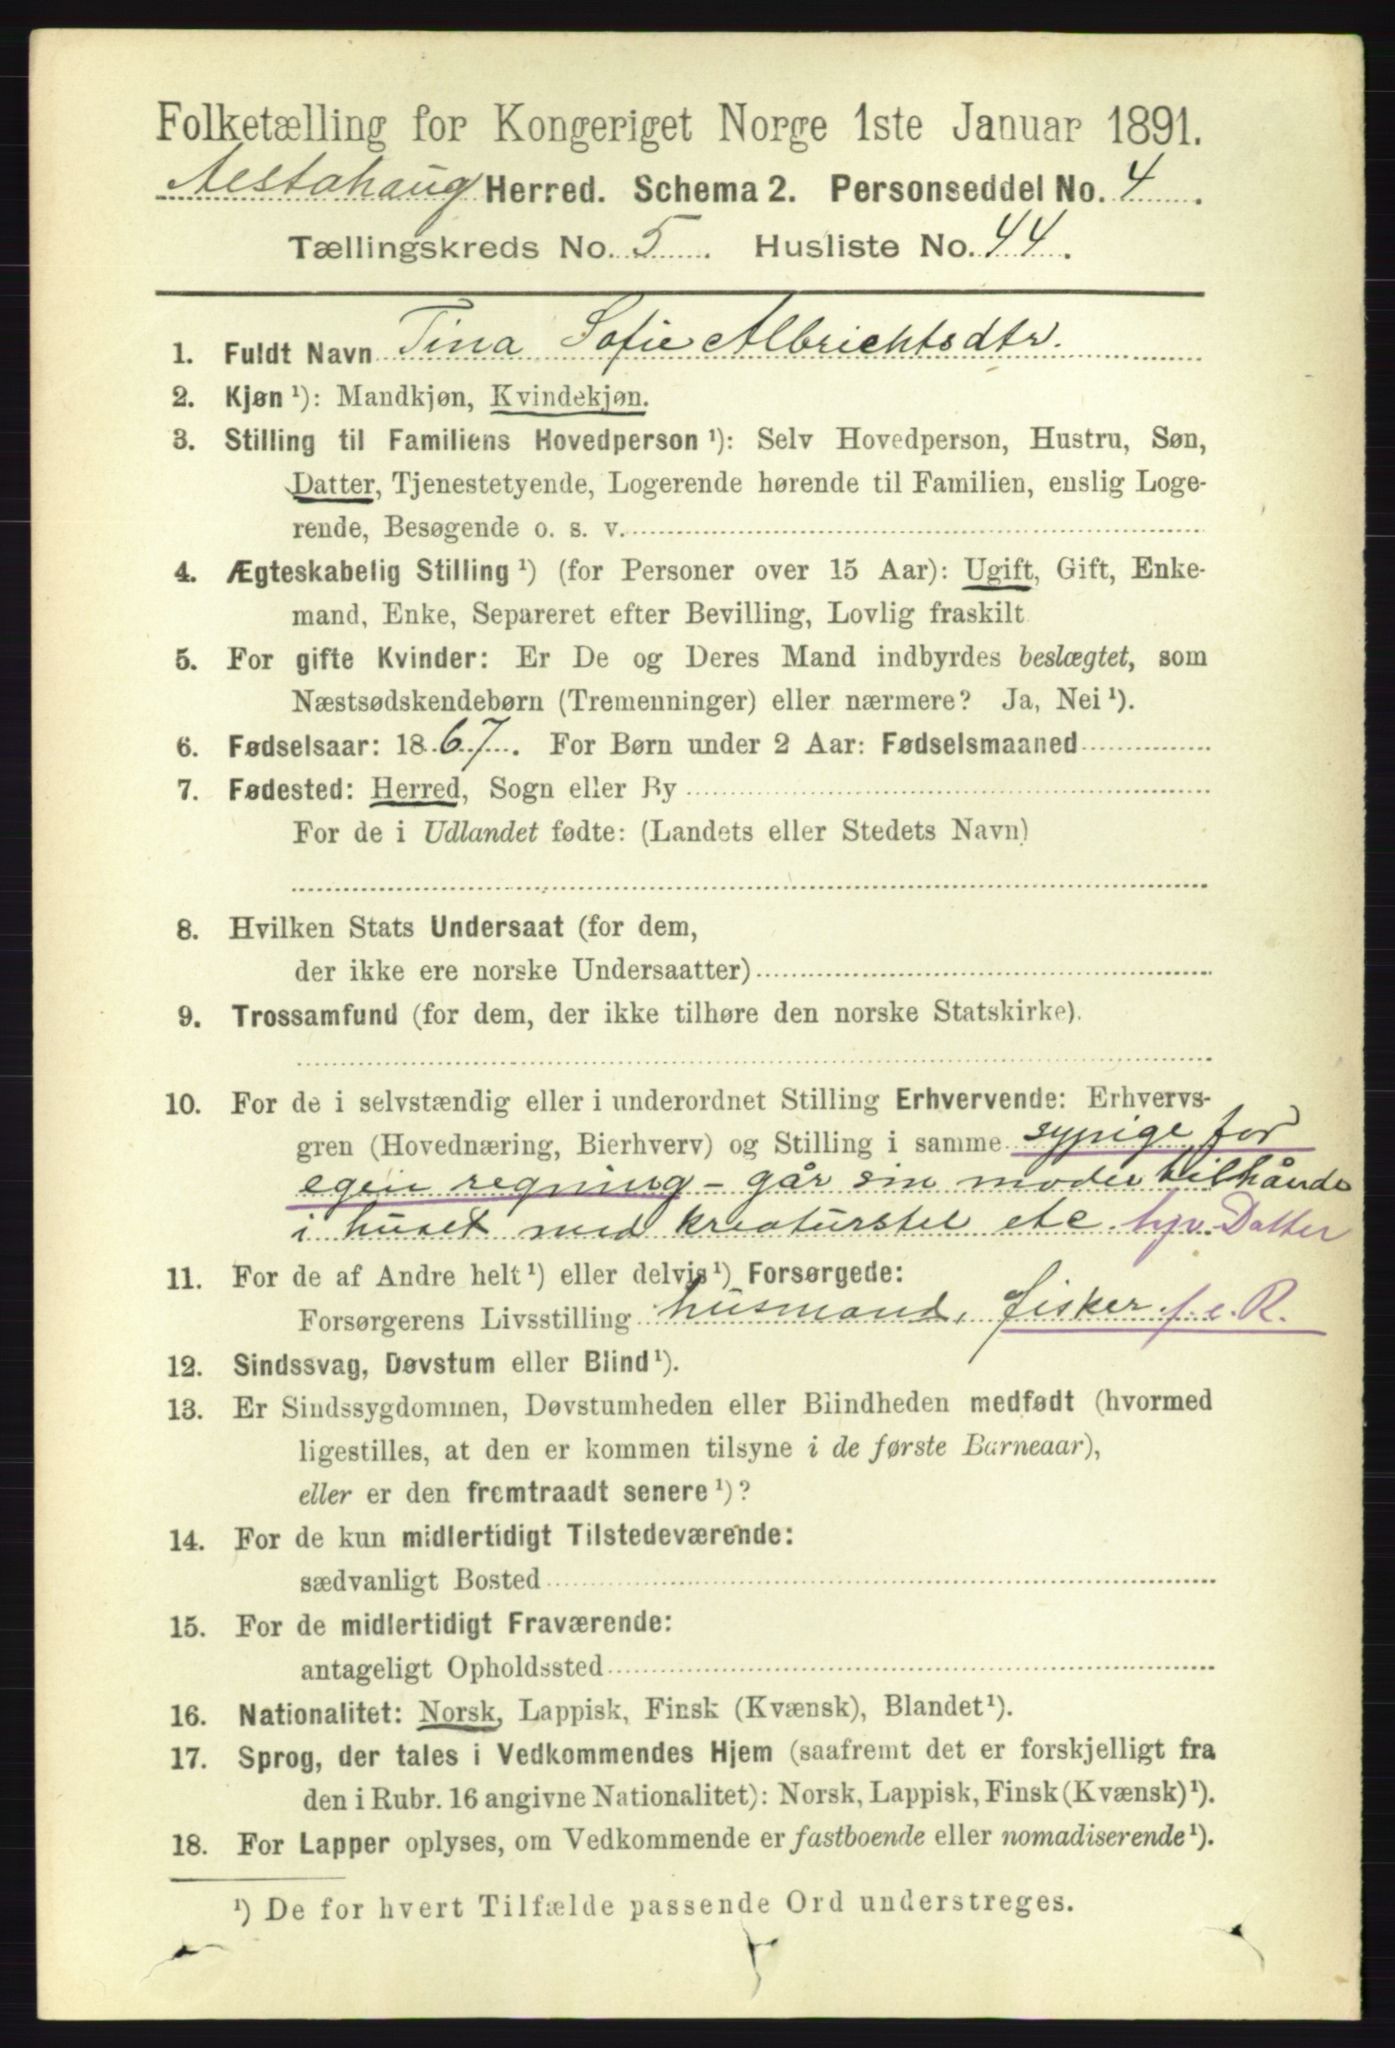 Folketælling for Kongeriget Norge 1ste Januar 1891.
Alstahaug Herred. Schema 2. Personseddel No. 4.
Tællingskreds No. 5. Husliste No. 44.
1. Fuldt Navn Tina Sofie Albrichtsdtr.
2. Kjøn ¹): Mandkjøn, Kvindekjøn.
3. Stilling til Familiens Hovedperson ¹): Selv Hovedperson, Hustru, Søn,
Datter, Tjenestetyende, Logerende hørende til Familien, enslig Loge-
rende, Besøgende o. s. v.
4. Ægteskabelig Stilling ¹) (for Personer over 15 Aar): Ugift, Gift, Enke-
mand, Enke, Separeret efter Bevilling, Lovlig fraskilt
5. For gifte Kvinder: Er De og Deres Mand indbyrdes beslægtet, som
Næstsødskendebørn (Tremenninger) eller nærmere? Ja, Nei ¹).
6. Fødselsaar: 1867. For Børn under 2 Aar: Fødselsmaaned
7. Fødested: Herred, Sogn eller By
For de i Udlandet fødte: (Landets eller Stedets Navn)
8. Hvilken Stats Undersaat (for dem,
der ikke ere norske Undersaatter)
9. Trossamfund (for dem, der ikke tilhøre den norske Statskirke).
10. For de i selvstændig eller i underordnet Stilling Erhvervende: Erhvervs-
gren (Hovednæring, Bierhverv) og Stilling i samme sypige for
egen regning - går sin moder tilhånde
i huset med kreaturstel etc hjv. Datter
11. For de af Andre helt ¹) eller delvis ¹) Forsørgede:
Forsørgerens Livsstilling husmand, fisker f. e. R.
12. Sindssvag, Døvstum eller Blind ¹).
13. Er Sindssygdommen, Døvstumheden eller Blindheden medfødt (hvormed
ligestilles, at den er kommen tilsyne i de første Barneaar),
eller er den fremtraadt senere ¹)?
14. For de kun midlertidigt Tilstedeværende:
sædvanligt Bosted
15. For de midlertidigt Fraværende:
antageligt Opholdssted
16. Nationalitet: Norsk, Lappisk, Finsk (Kvænsk), Blandet ¹).
17. Sprog, der tales i Vedkommendes Hjem (saafremt det er forskjelligt fra
den i Rubr. 16 angivne Nationalitet): Norsk, Lappisk, Finsk (Kvænsk) ¹).
18. For Lapper oplyses, om Vedkommende er fastboende eller nomadiserende ¹).
¹) De for hvert Tilfælde passende Ord understreges.